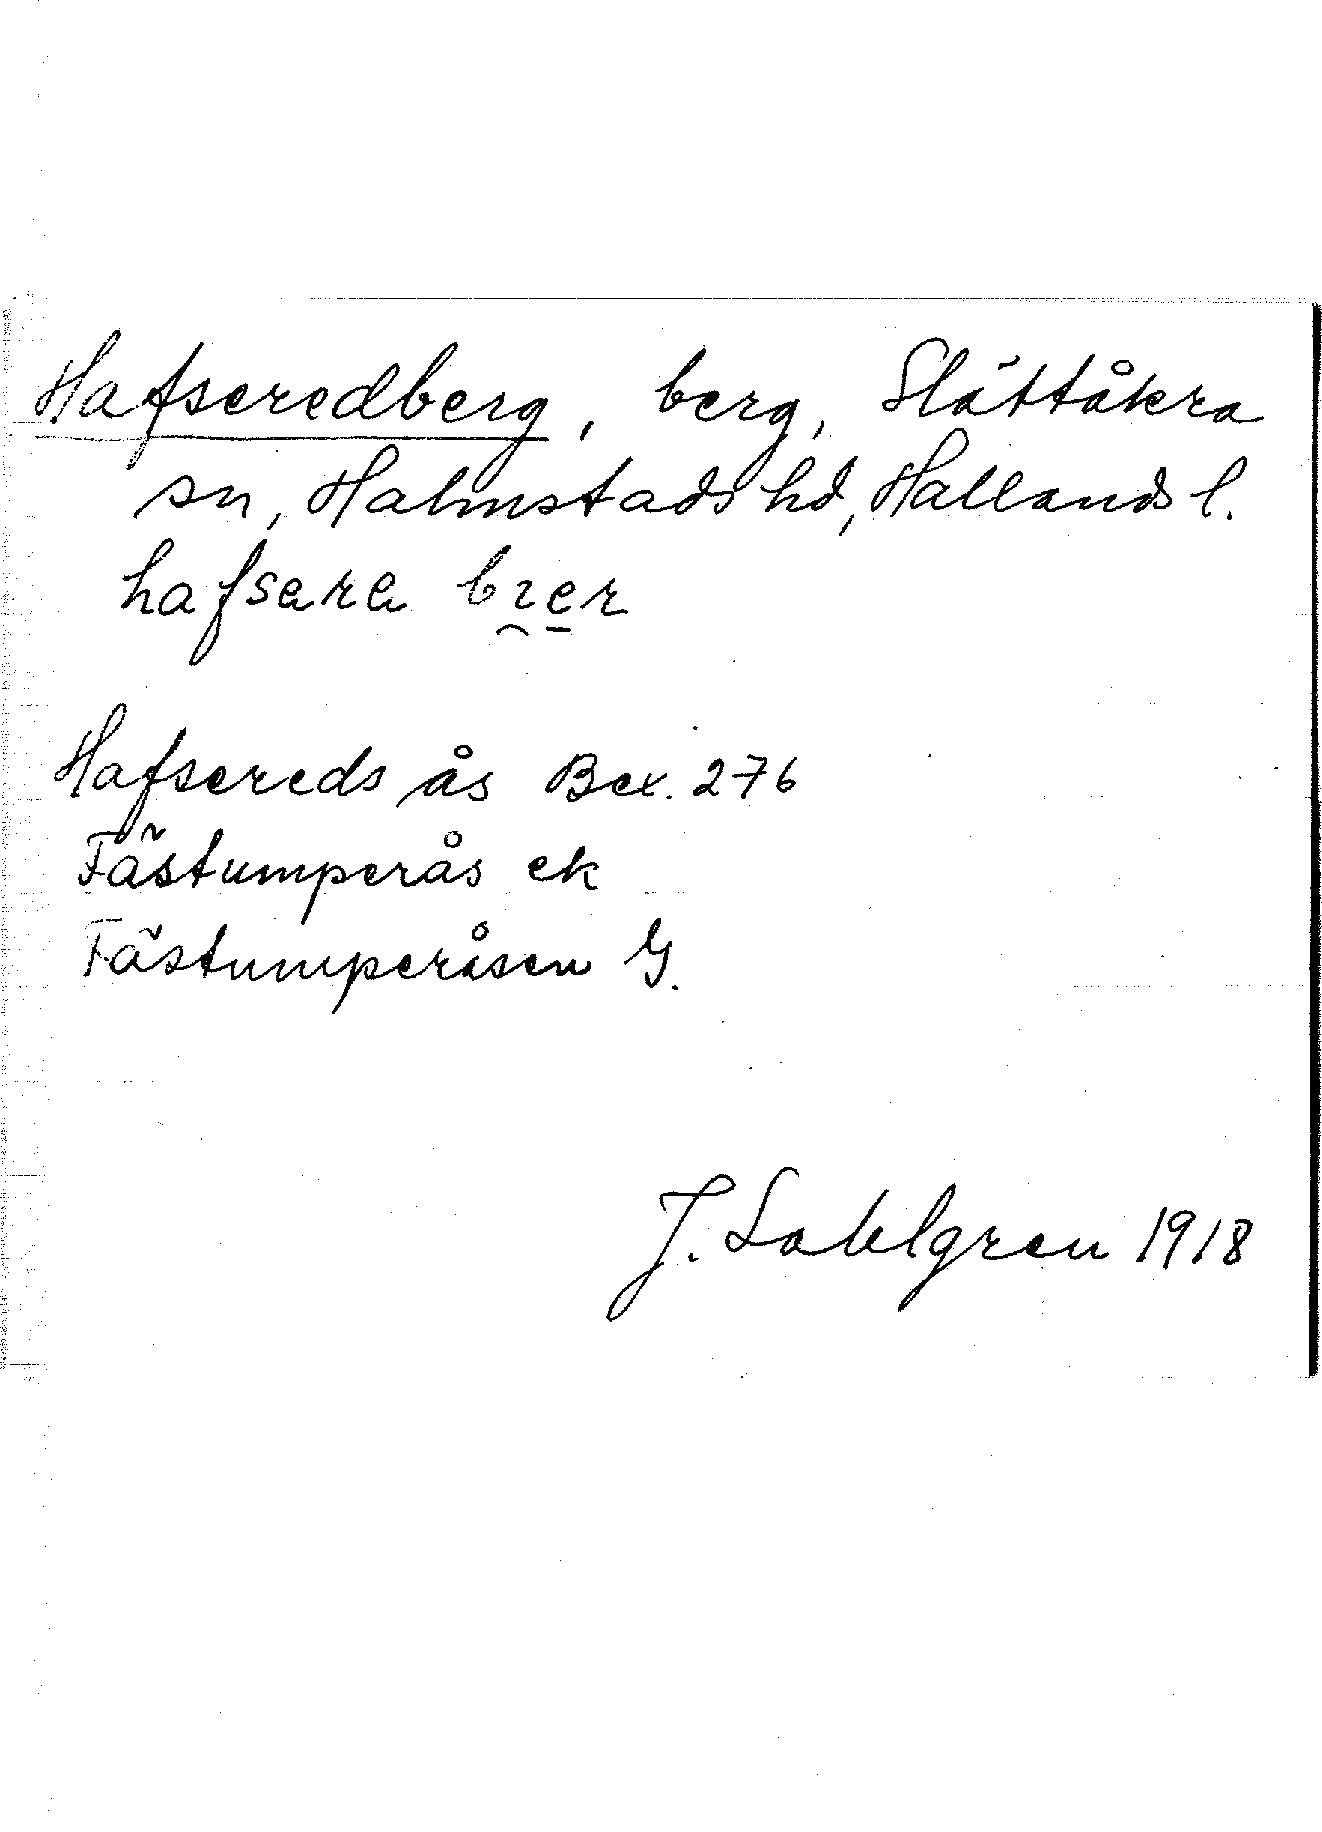 Hafseredberg, berg, Slättåkra
sn, Halmstads hd, Hallands l.
hafsara
Hafsereds ås Bex. 276
Fästumperås ek
Fästumperåsen G.
J. Sahlgren 1918